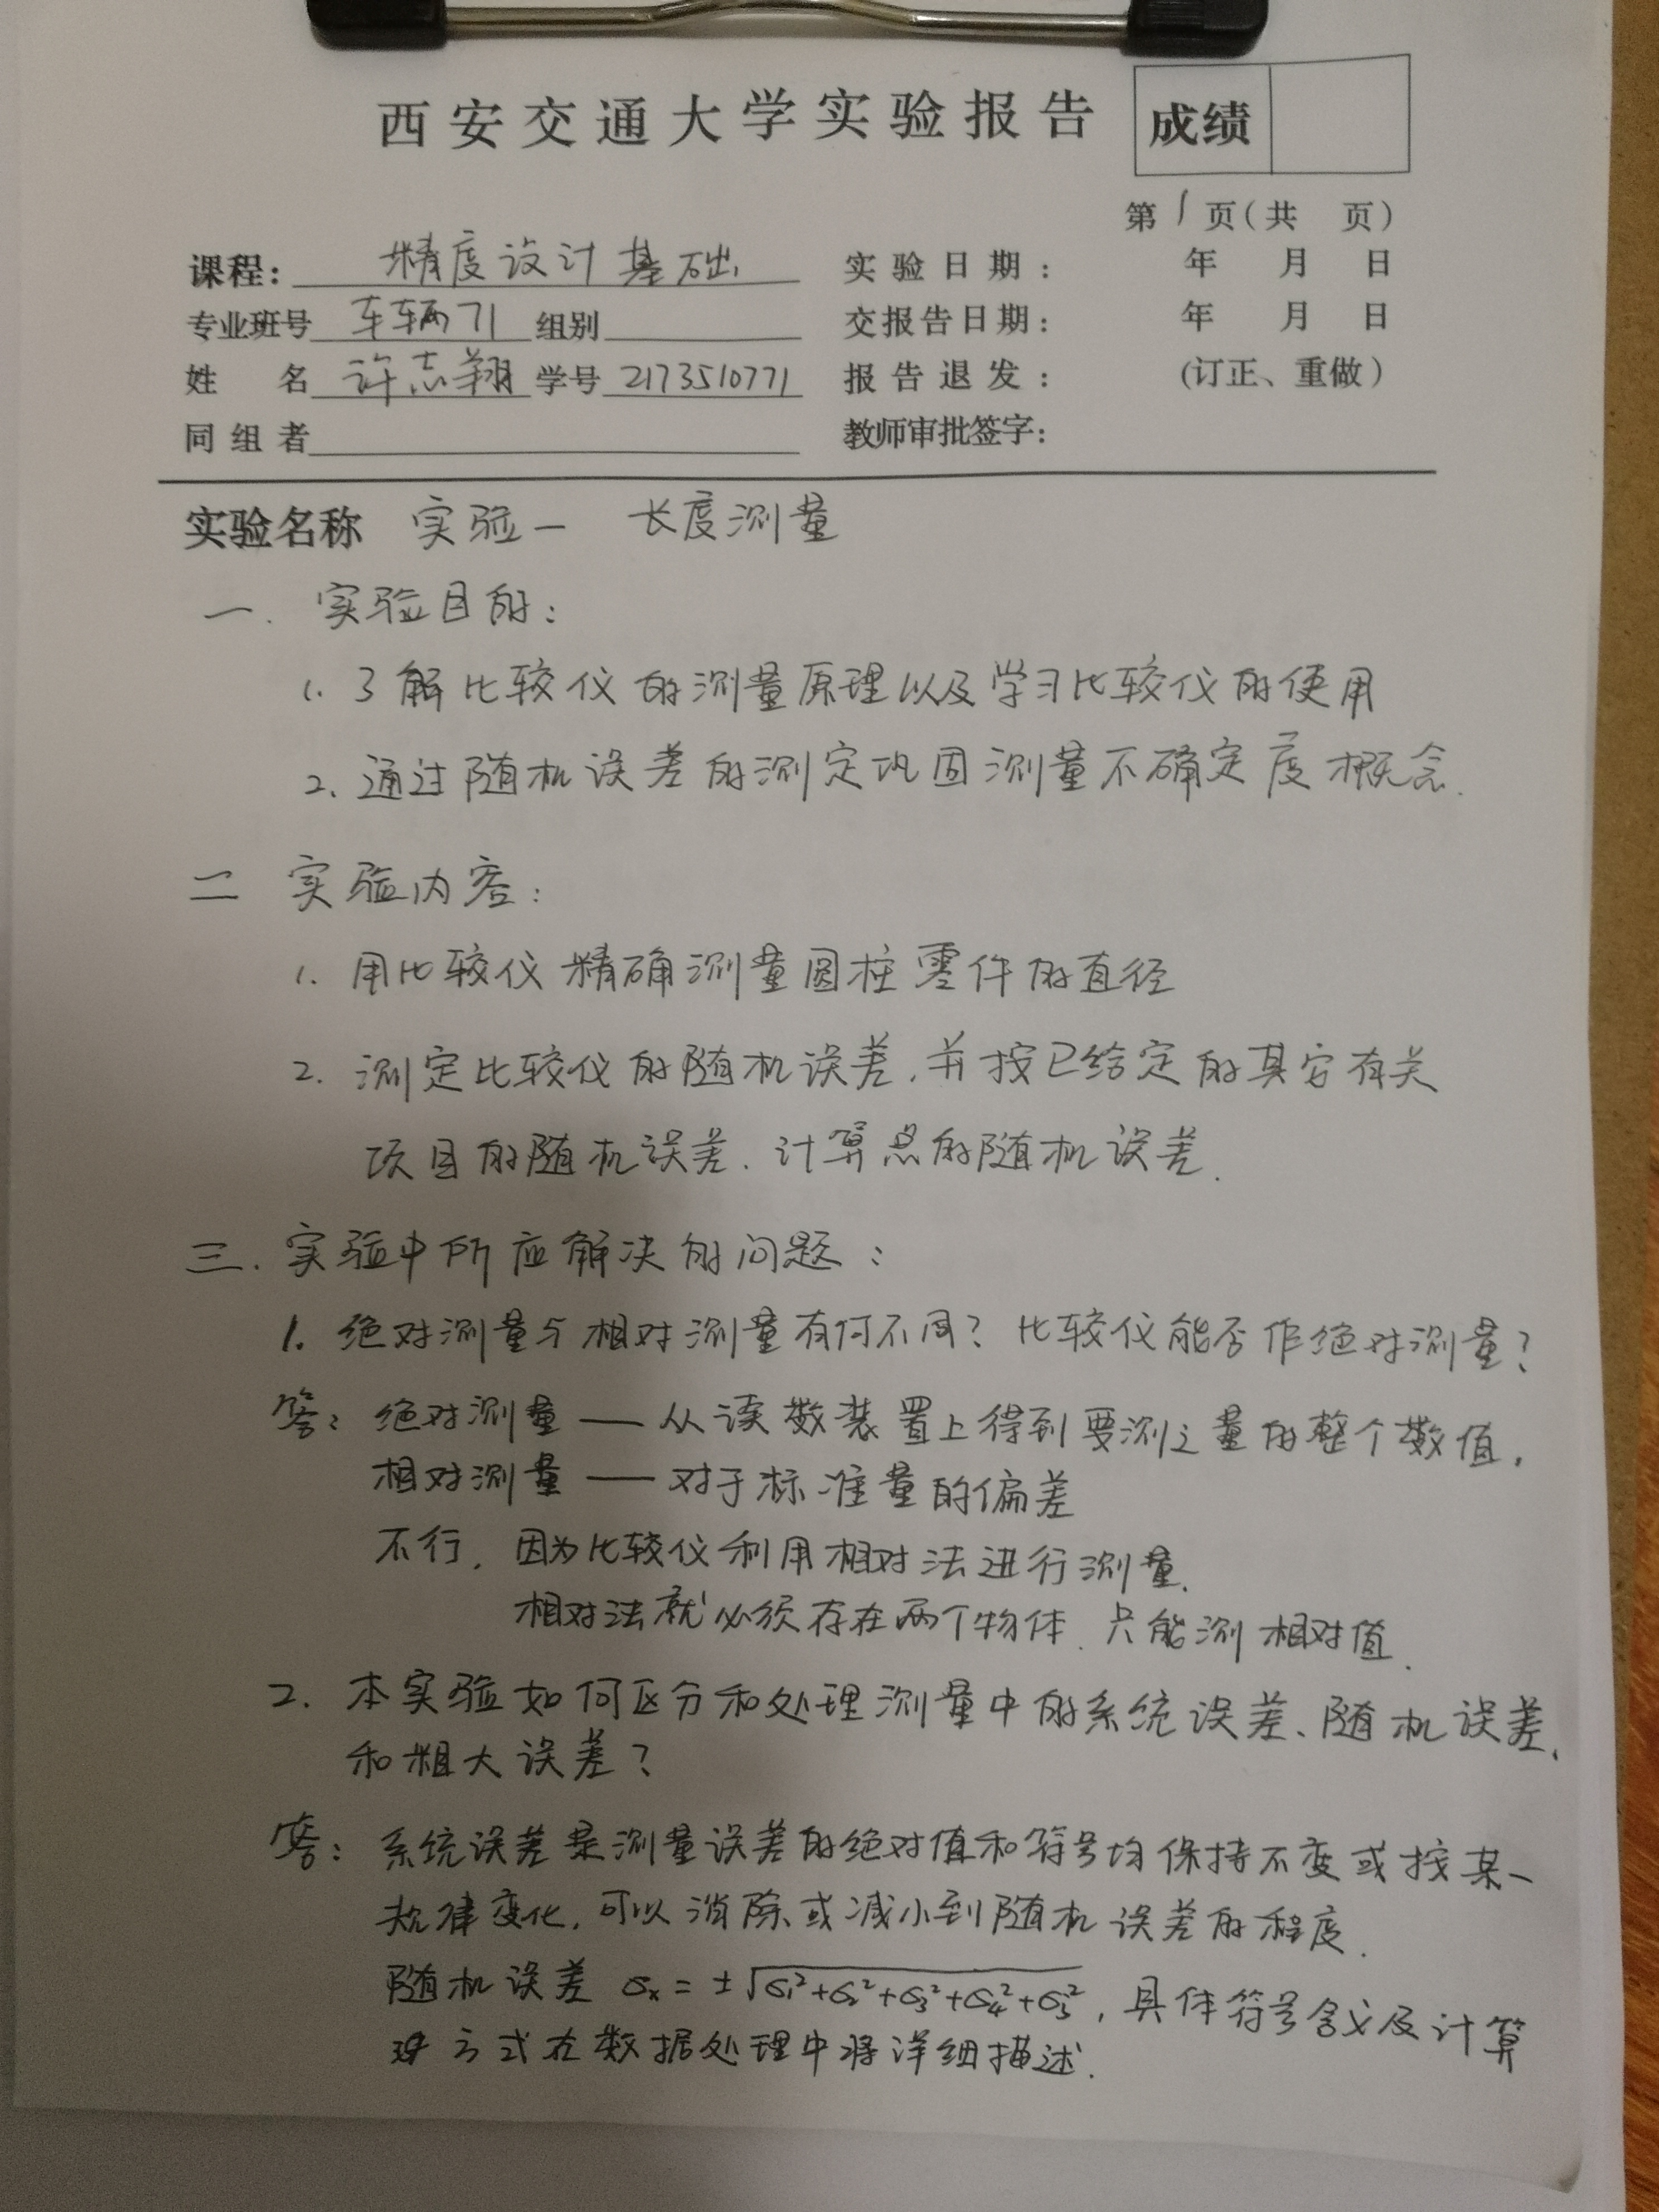 西安交通大学实验报告 成绩
第1页(共 页)
课程: 精度设计基础 实验日期: 年 月 日
专业班号 车辆71 组别 交报告日期: 年 月 日
姓 名 许志翔 学号 2173510771 报告退发: (订正、重做)
同组者 教师审批签字:
实验名称 实验一 长度测量
一. 实验目的:
1. 了解比较仪的测量原理以及学习比较仪的使用
2. 通过随机误差的测定巩固测量不确定度概念.
二 实验内容:
1. 用比较仪精确测量圆柱零件的直径
2. 测定比较仪的随机误差,并按已给定的其它有关
项目的随机误差.计算总的随机误差.
三. 实验中所应解决的问题:
1. 绝对测量与相对测量有何不同?比较仪能否作绝对测量?
答: 绝对测量——从读数装置上得到要测之量的整个数值.
相对测量——对于标准量的偏差
不行. 因为比较仪利用相对法进行测量.
相对法就必须存在两个物体.只能测相对值.
2. 本实验如何区分和处理测量中的系统误差、随机误差、
和粗大误差?
答: 系统误差是测量误差的绝对值和符号均保持不变或按某一
规律变化,可以消除或减小到随机误差的程度.
随机误差 σx = ±√σ1²+σ2²+σ3²+σ4²+σ5², 具体符号含义及计算
方式在数据处理中将详细描述.